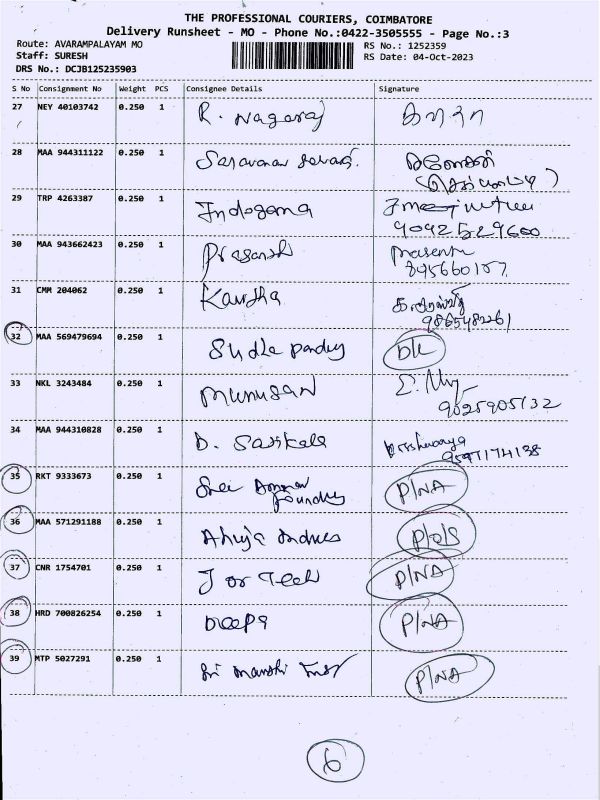 THE PROFESSIONAL COURIERS, COIMBATORE
Delivery Runsheet - MO - Phone No.:0422-3505555 - Page No.:3
Route: AVARAMPALAYAM MO RS No.: 1252359
Staff: SURESH RS Date: 04-Oct-2023
DRS No.: DCJB125235903
S No Consignment No Weight PCS Consignee Details Signature
27 NEY 40103742 0.250 1 R. Nagaraj
28 MAA 944311122 0.250 1 Saravanan
29 TRP 4263387 0.250 1 Indogama
9092529600
30 MAA 943662423 0.250 1 Prasanth
31 CMM 204062 0.250 1 Kavitha
32 MAA 569479694 0.250 1 Sudha Pandey D/L
33 NKL 3243484 0.250 1 Munusan
9025905132
34 MAA 944310828 0.250 1 D. Sasikala
9597174138
35 RKT 9333673 0.250 1 Sree Amman P/NA
Foundry
36 MAA 571291188 0.250 1 Ahuja P/O/S
37 CNR 1754701 0.250 1 J or Tech P/NA
38 HRD 700826254 0.250 1 Deepa P/NA
39 MTP 5027291 0.250 1 Sri P/NA
6